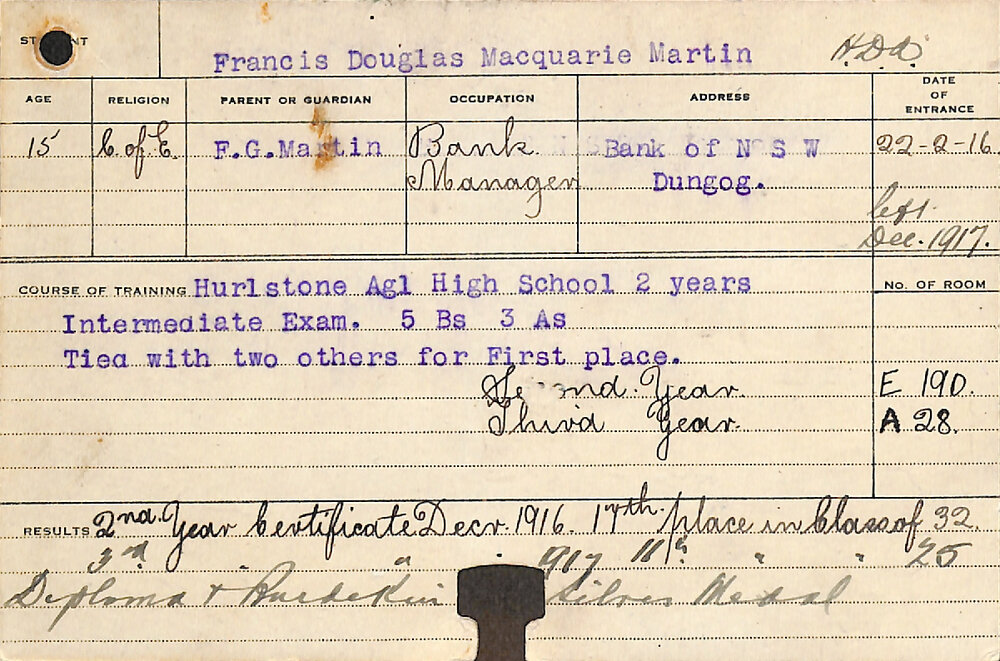 Francis Douglas Macquarie Martin H.D.A.
AGE RELIGION PARENT OR GUARDIAN OCCUPATION ADDRESS DATE OF ENTRANCE
15 C. of E. F.G.Martin Bank Manager Bank of N S W Dungog. 22-2-16
left Dec. 1917.
COURSE OF TRAINING Hurlstone Agl High School 2 years
No. OF ROOM
Intermediate Exam. 5 Bs 3 As
Tied with two others for First place.
Second Year. E 190.
Third Year. A 28.
RESULTS 2nd. Year Certificate Decr. 1916. 17th. place in Class of 32.
3rd " " " 1917 11th " " 25
Diploma & Burdekin Silver Medal